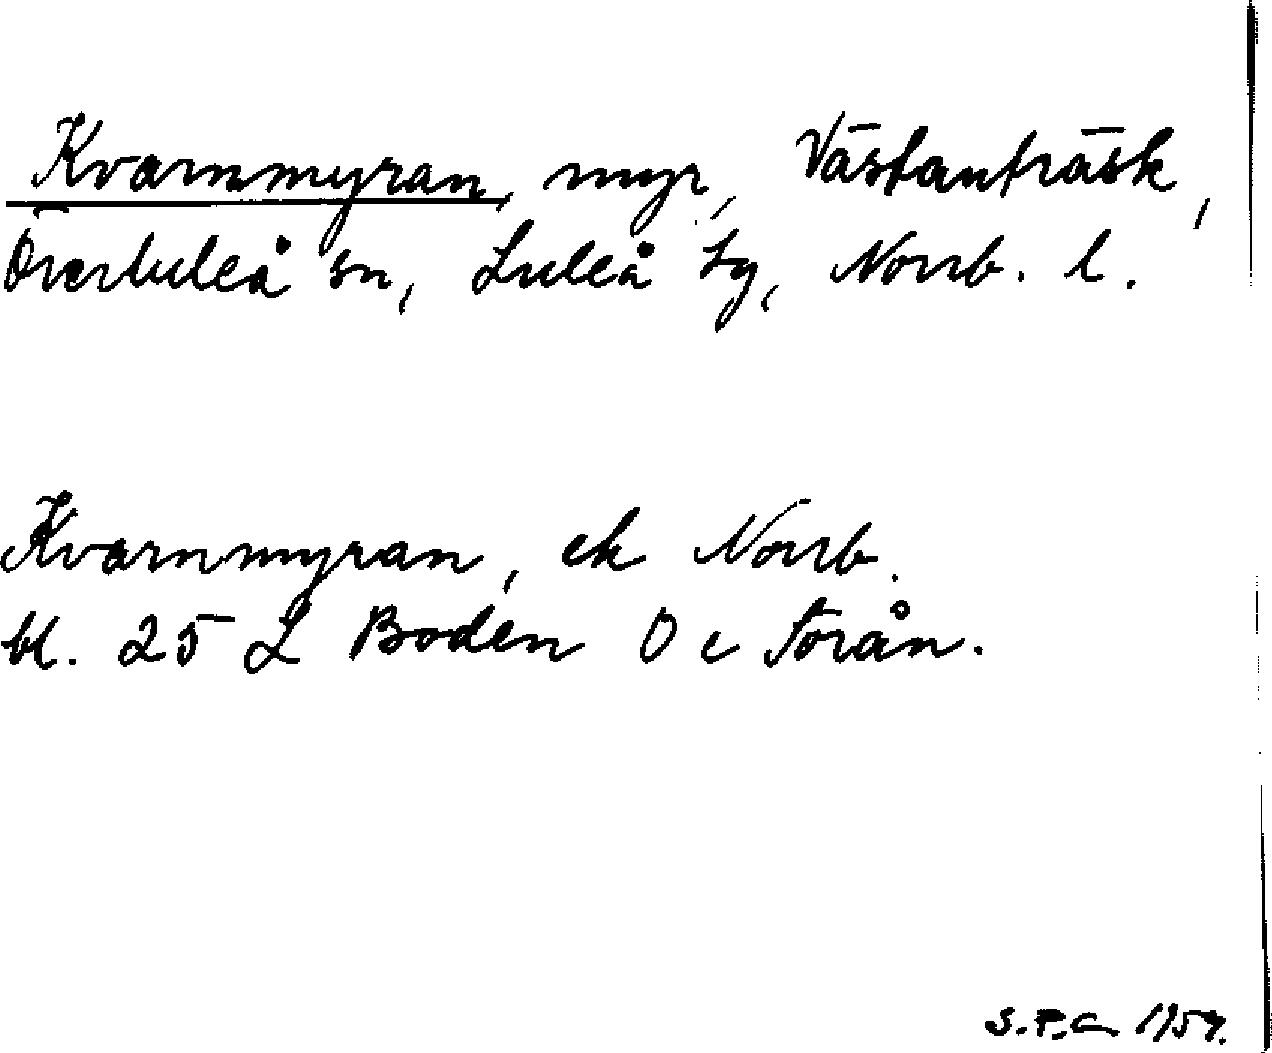 Kvarnmyran, myr, Västanträsk,
Överluleå sn, Luleå tg, Norrb. l.
Kvarnmyran, ek Norrb.
bl. 25 L Boden O c Torån.
S.P.C 1957.